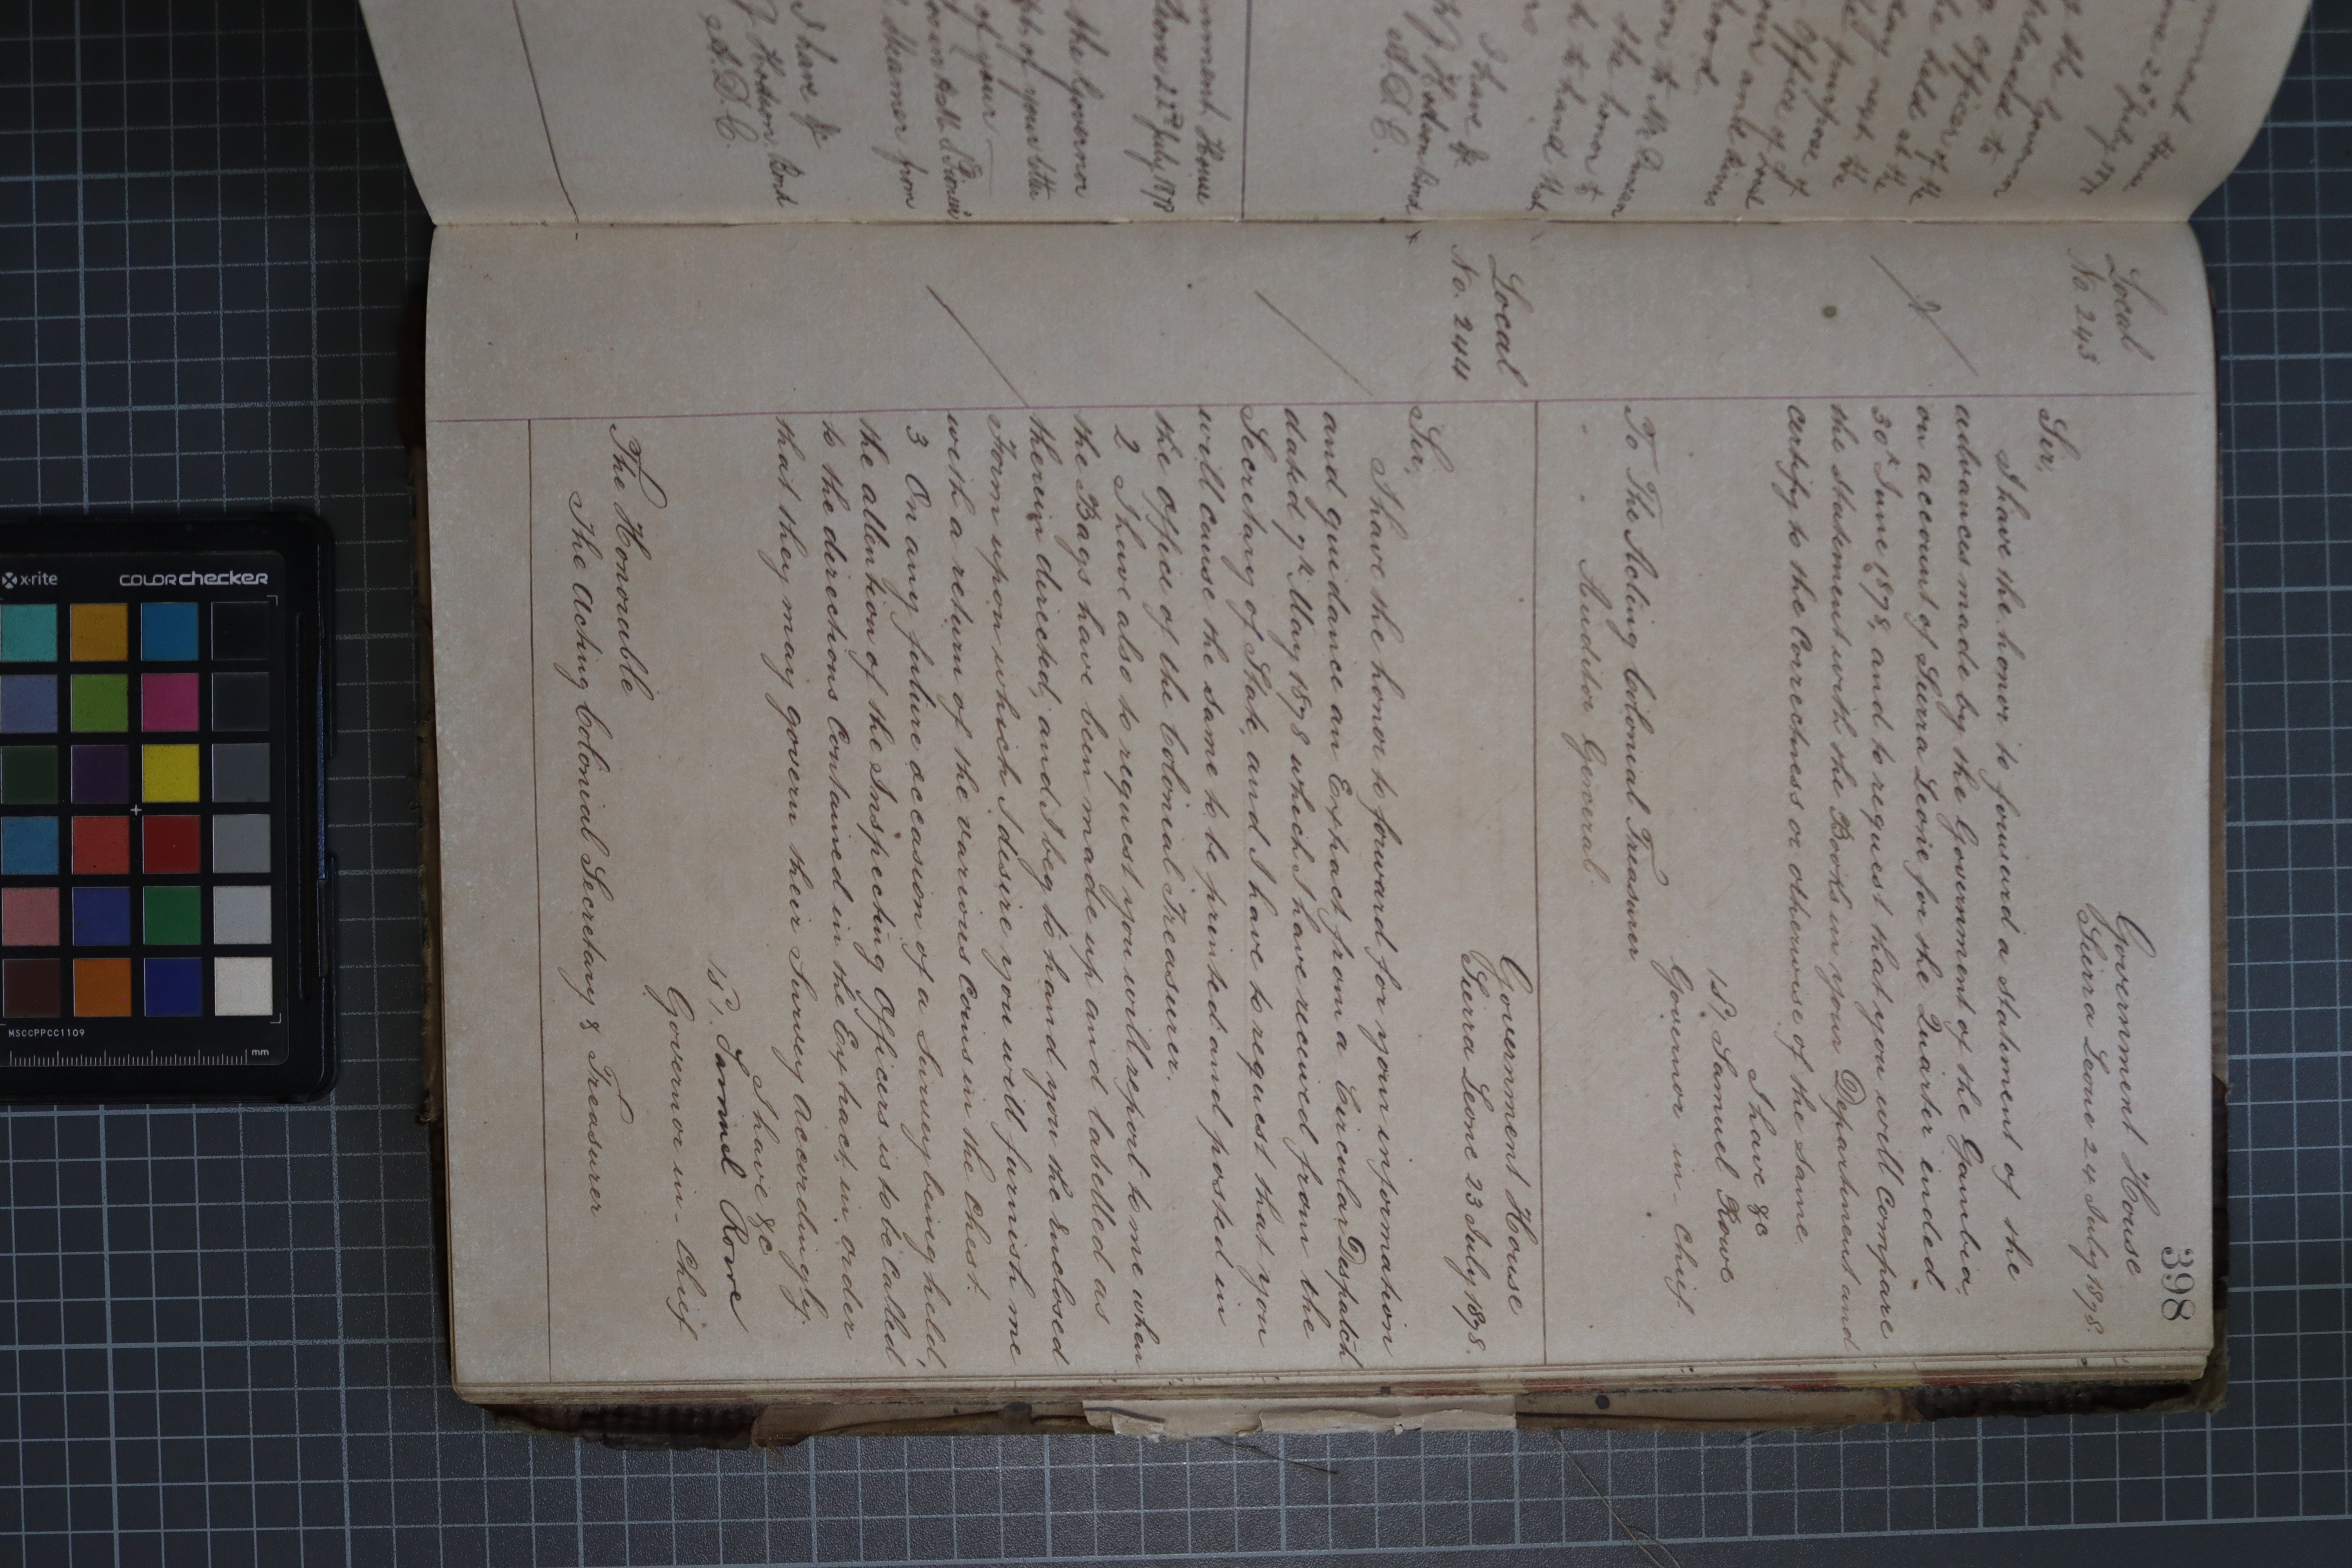 398
Local
No 243
Government House
Sierra Leone 24 July 1878.
Sir,
I have the honor to forward a Statement of the
advances made by the Government of the Gambia,
on account of Sierra Leone for the Quarter ended
30th June 1878, and to request that you will Compare
the Statement with the Books in your Department and
certify to the Correctness or otherwise of the same
I have &c
Samuel Rowe
Governor in-Chief.
To The Acting Colonial Treasurer
" " Auditor General.
Local
No. 244
Government House
Sierra Leone 23 July 1878.
Sir,
I have the honor to forward for your information
and guidance an Extract from a Circular Despatch
dated 9th May 1878 which I have received from the
Secretary of State, and I have to request that you
will cause the same to be printed and posted in
the Office of the Colonial Treasurer.
2 I have also to request you will report to me when
the Bags have been made up and labelled as
therein directed, and I beg to hand you the Enclosed
Form upon which I desire you will furnish me
with a return of the various Coins in the Chest.
3 On any future occasion of a Survey being held,
the attention of the Inspecting Officers is to be called
to the directions Contained in the Extract, in order
that they may govern their Survey accordingly.
I have &c
Samuel Rowe
Governor in-Chief
The Honourable
The Acting Colonial Secretary & Treasurer
the Governor
of your letter
of your
Steamer from
I have &c
A.D.C.
I have &c
A.D.C.
x-rite
colorchecker
MSCCPPCC1109
mm